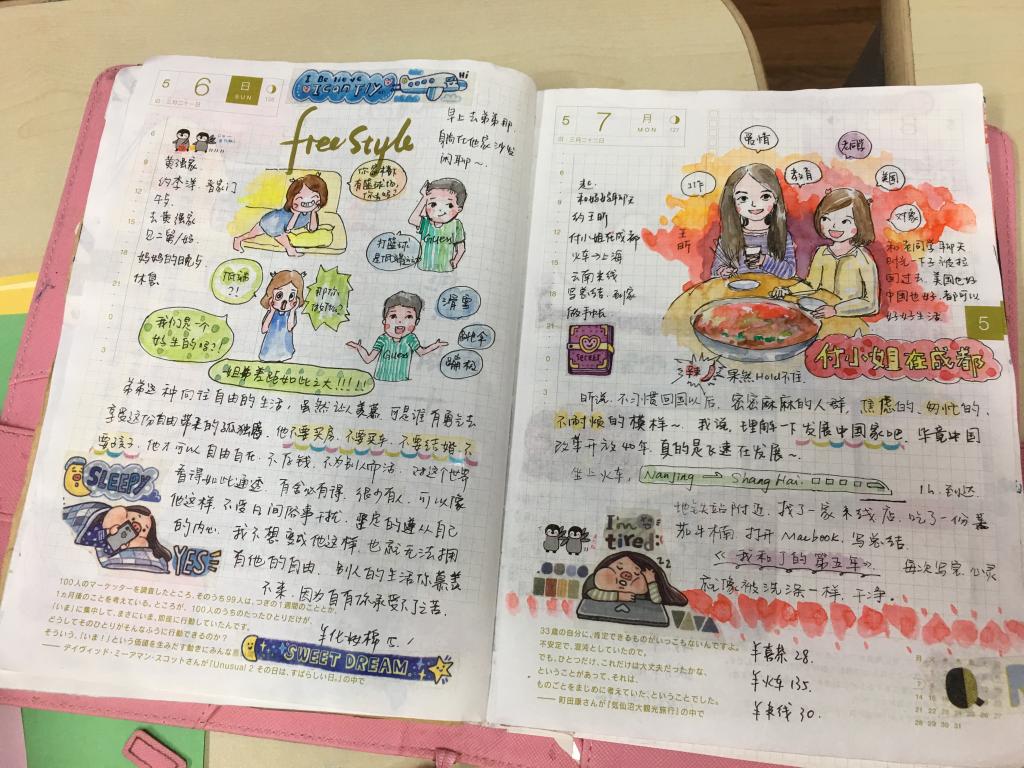 5
6
日
SUN
126
旧:三月二十一日
I Believe
I Can Fly
Hi
free Style
早上去弟弟那
躺在他家沙发
闲聊~
6
9
12
15
18
21
0
3
午与
去黄强家
见二舅/妈
妈妈的晚与
休息
打篮球
是低端运动
Guess
低端
?!
那你
滑雪
蹦极
我们是一个
妈生的吗?!
Guess
姐弟差距如此之大!!!!!
弟弟这种向往自由的生活,虽然让人羡慕,可是谁有勇气去
享受这份自由带来的孤独感,他不要买房,不要买车,不要结婚,不
要孩子,他才可以自由自在,不存钱,不为别人而活,对这个世界
看得如此通透,有舍必有得,很少有人,可以像
他这样,不受人间俗事干扰,坚定的遵从自己
的内心,我不想变成他这样,也就无法拥
有他的自由,别人的生活你羡慕
不来,因为自有你承受不了之苦。
SLEEPY
YES
SWEET DREAM
100人のマーケッターを調査したところ、そのうち99人は、つぎの1週間のこととか、
1ヵ月後のことを考えている。ところが、100人のうちのたったひとりだけが、
「いま」に集中して、まさにいま、即座に行動していたんです。
どうしてそのひとりがそんなふうに行動できるのか?
そういう、「いま!」という価値を生みだす動きにみんな
—— デイヴィッド・ミーアマン・スコットさんが『Unusual 2 その日は、すばらしい日。』の中で
5
7
月
MON
127
旧:三月二十二日
爱情
老同学
工作
教育
美国
对象
王昕
6
9
12
15
18
21
0
3
起
和妈妈聊天
约王昕
付小姐在成都
火车→上海
云南米线
写总结,到家
做手帐
SECRET
和老同学聊天
时光一下子被拉
回过去,美国也好
中国也好,都可以
好好生活
5
付小姐在成都
辣
果然Hold不住
昕说,不习惯回国以后,密密麻麻的人群,焦虑的,匆忙的,
不耐烦的模样~ 我说,理解一下发展中国家吧,毕竟中国
改革开放40年,真的是飞速在发展~
坐上火车, Nanjing → ShangHai 1h.到达
地铁站附近,找了一家米线店,吃了一份番
茄牛腩,打开Macbook,写总结.
《我和J的第五年》 每次写完,心灵
就像被洗涤一样,干净。
I'm
tired
zz
33歳の自分に、肯定できるものがいっこもないんですよ。
不安定で、混沌としていたので。
でも、ひとつだけ、これだけは大丈夫だったかな、
ということがあって、それは、
ものごとをまじめに考えていた、ということでした。
—— 町田康さんが『気仙沼大観光旅行』の中で
¥火车 135.
¥米线 30.